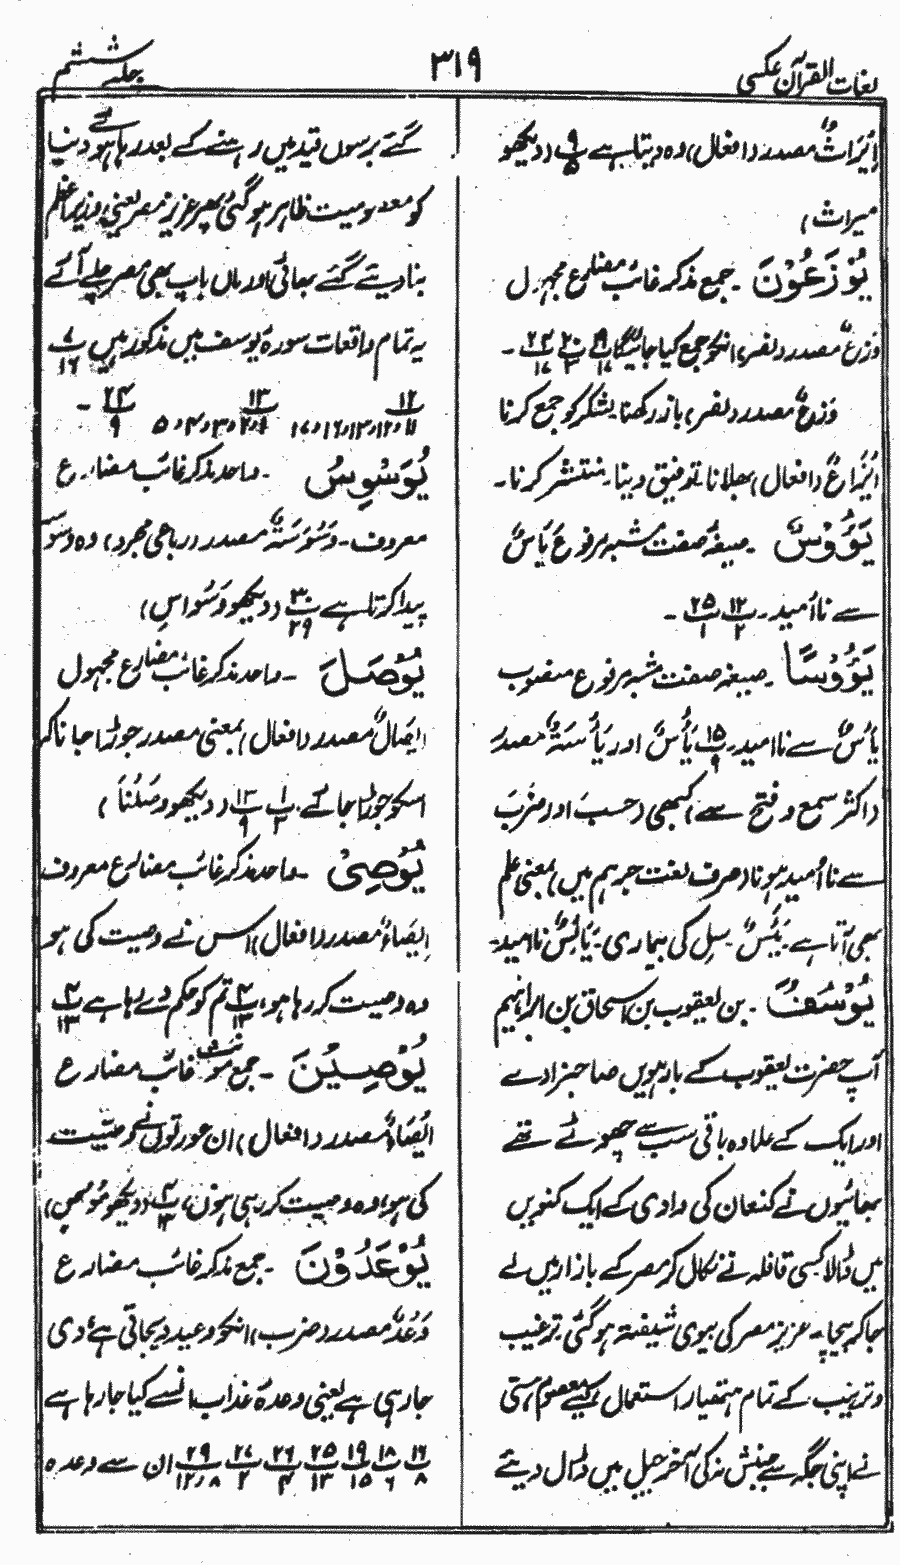 لغات القرآن عکسی
۳۱۹
جلد ششم
اِیْرَاثٌ مصدر (افعال) وہ دیتا ہے پ ۹/۵ (دیکھو
میراث)
یُوْزَعُوْنَ ۔ جمع مذکر غائب مضارع مجہول
وَزْعٌ مصدر (نصر) انکو جمع کیا جائیگا پ ۱۹/۱۷ پ ۲۰/۳ پ ۲۴/۱۷ ۔
وَزْعٌ مصدر (نصر) باز رکھنا۔ لشکر کو جمع کرنا
اِیْزَاعٌ (افعال) بھلانا۔ توفیق دینا۔ منتشر کرنا۔
یَؤُوْسٌ ۔ صیغہ صفت مشبہ مرفوع یَأْسٌ
سے نا اُمید۔ پ ۱۲/۲ پ ۲۵/۱ ۔
یَؤُوْسًا ۔ صیغہ صفت مشبہ مرفوع منصوب
یَأْسٌ سے نا امید۔ پ ۱۵/۹ یَأْسٌ اور یَأْسَۃٌ مصدر
(اکثر سمع و فتح سے) کبھی (حسب اور ضرب
سے نا اُمید ہونا (صرف لغت جرہم میں) بمعنی علم
بھی آتا ہے۔ یَئِسٌ۔ سِل کی بیماری۔ یَائِسٌ نا امید۔
یُوْسُفُ ۔ بن یعقوب بن اسحاق بن ابراہیم
آپ حضرت یعقوب کے بارہویں صاحبزادے
اور ایک کے علاوہ باقی سب سے چھوٹے تھے
بھائیوں نے کنعان کی وادی کے ایک کنویں
میں ڈالا کسی قافلہ نے نکال کر مصر کے بازار میں لے
جا کر بیچا۔ عزیز مصر کی بیوی شیفتہ ہو گئی، ترغیب
و ترہیب کے تمام ہتھیار استعمال کیے معصوم ہستی
نے اپنی جگہ سے جنبش نہ کی آخر جیل میں ڈال دیئے
گئے برسوں قید میں رہنے کے بعد رہا ہوئے دنیا
کو معصومیت ظاہر ہو گئی پھر عزیز مصر یعنی وزیر اعظم
بنا دیئے گئے بھائی اور ماں باپ بھی مصر چلے آئے
یہ تمام واقعات سورہ یوسف میں مذکور ہیں پ ۷/۱۶
پ ۱۲/۱۱، ۱۲، ۱۳، ۱۶، ۱۷ پ ۱۳/۱، ۲، ۳، ۴، ۵ پ ۲۴/۹ ۔
یُوَسْوِسُ ۔ واحد مذکر غائب مضارع
معروف۔ وَسْوَسَۃٌ مصدر (رباعی مجرد) وہ وسوسہ
پیدا کرتا ہے پ ۳۰/۳۹ (دیکھو وَسْوَاسِ)
یُوْصَلَ ۔ واحد مذکر غائب مضارع مجہول
اِیْصَالٌ مصدر (افعال) بمعنی مصدر جوڑا جانا کہ
اسکو جوڑا جائے۔ پ ۱/۳ پ ۱۳/۹ (دیکھو وَصَّلْنَا)
یُوْصِیْ ۔ واحد مذکر غائب مضارع معروف
اِیْصَاءٌ مصدر (افعال) اس نے وصیت کی ہو
وہ وصیت کر رہا ہو، پ ۴/۱۳ تم کو حکم دے رہا ہے پ ۴/۱۳
یُوْصِیْنَ ۔ جمع مؤنث غائب مضارع
اِیْصَاءٌ مصدر (افعال) ان عورتوں نے وصیت
کی ہو، وہ وصیت کر رہی ہوں، پ ۴/۱۳ (دیکھو مُوْصٍ)
یُوْعَدُوْنَ ۔ جمع مذکر غائب مضارع
وَعْدٌ مصدر (ضرب) انکو وعید دیجاتی ہے، دی
جا رہی ہے یعنی وعدہ عذاب ان سے کیا جا رہا ہے
پ ۱۶/۸ پ ۱۸/۶ پ ۱۹/۱۵ پ ۲۵/۱۳ پ ۲۶/۴ پ ۲۷/۲ پ ۲۹/۸، ۱۲ ان سے وعدہ